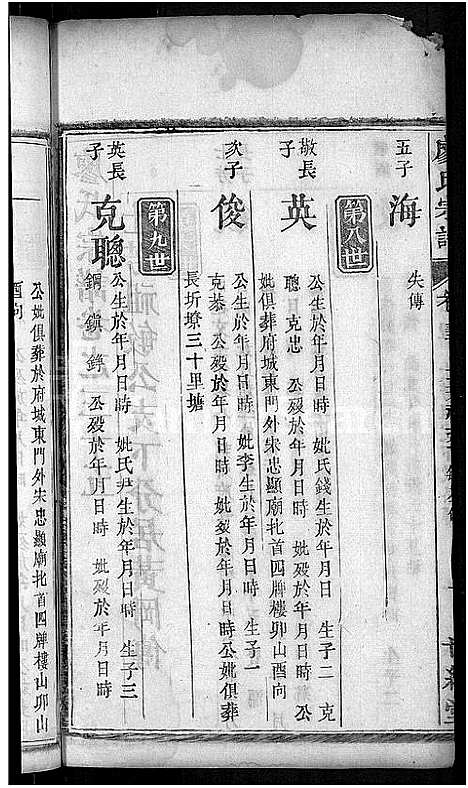 廖氏宗譜
五子
海
失傳
第八世
敬長子
英
公生於年月日時 妣氏錢生於年月日 生子二 克
聰 克忠 公殁於年月日時 妣殁於年月日時 公
妣俱葬府城東門外宋忠顯廟北首四牌樓卯山酉向
次子
俊
公生於年月日時 妣李生於年月日時 生子一
克恭 公殁於年月日時 妣殁於年月日時公妣俱葬
長圻墩三十里塘
第九世
英長子
克聰
公生於年月日時 妣氏尹生於年月日時 生子三
鋼 鎭 錚 公殁於年月日時 妣殁於年月日時
公妣俱葬於府城東門外宋忠顯廟北首四牌樓山卯山
酉向